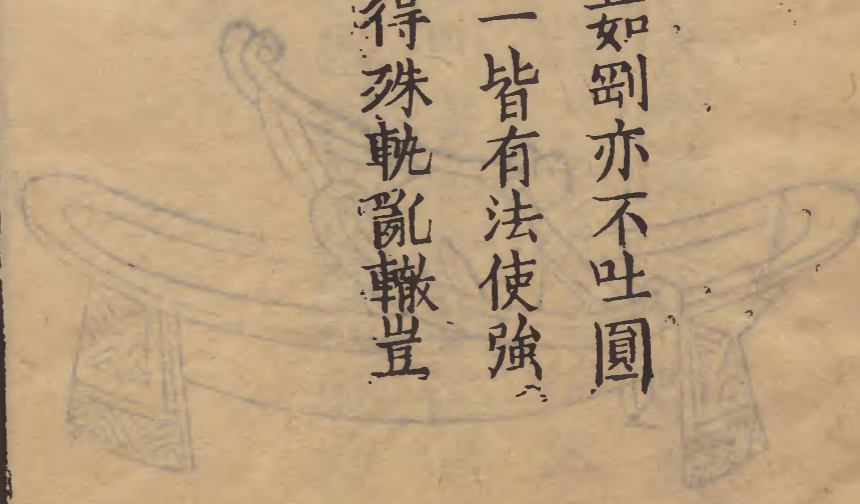 茹剛亦不吐圓
一皆有法使強
得殊軌亂轍豈